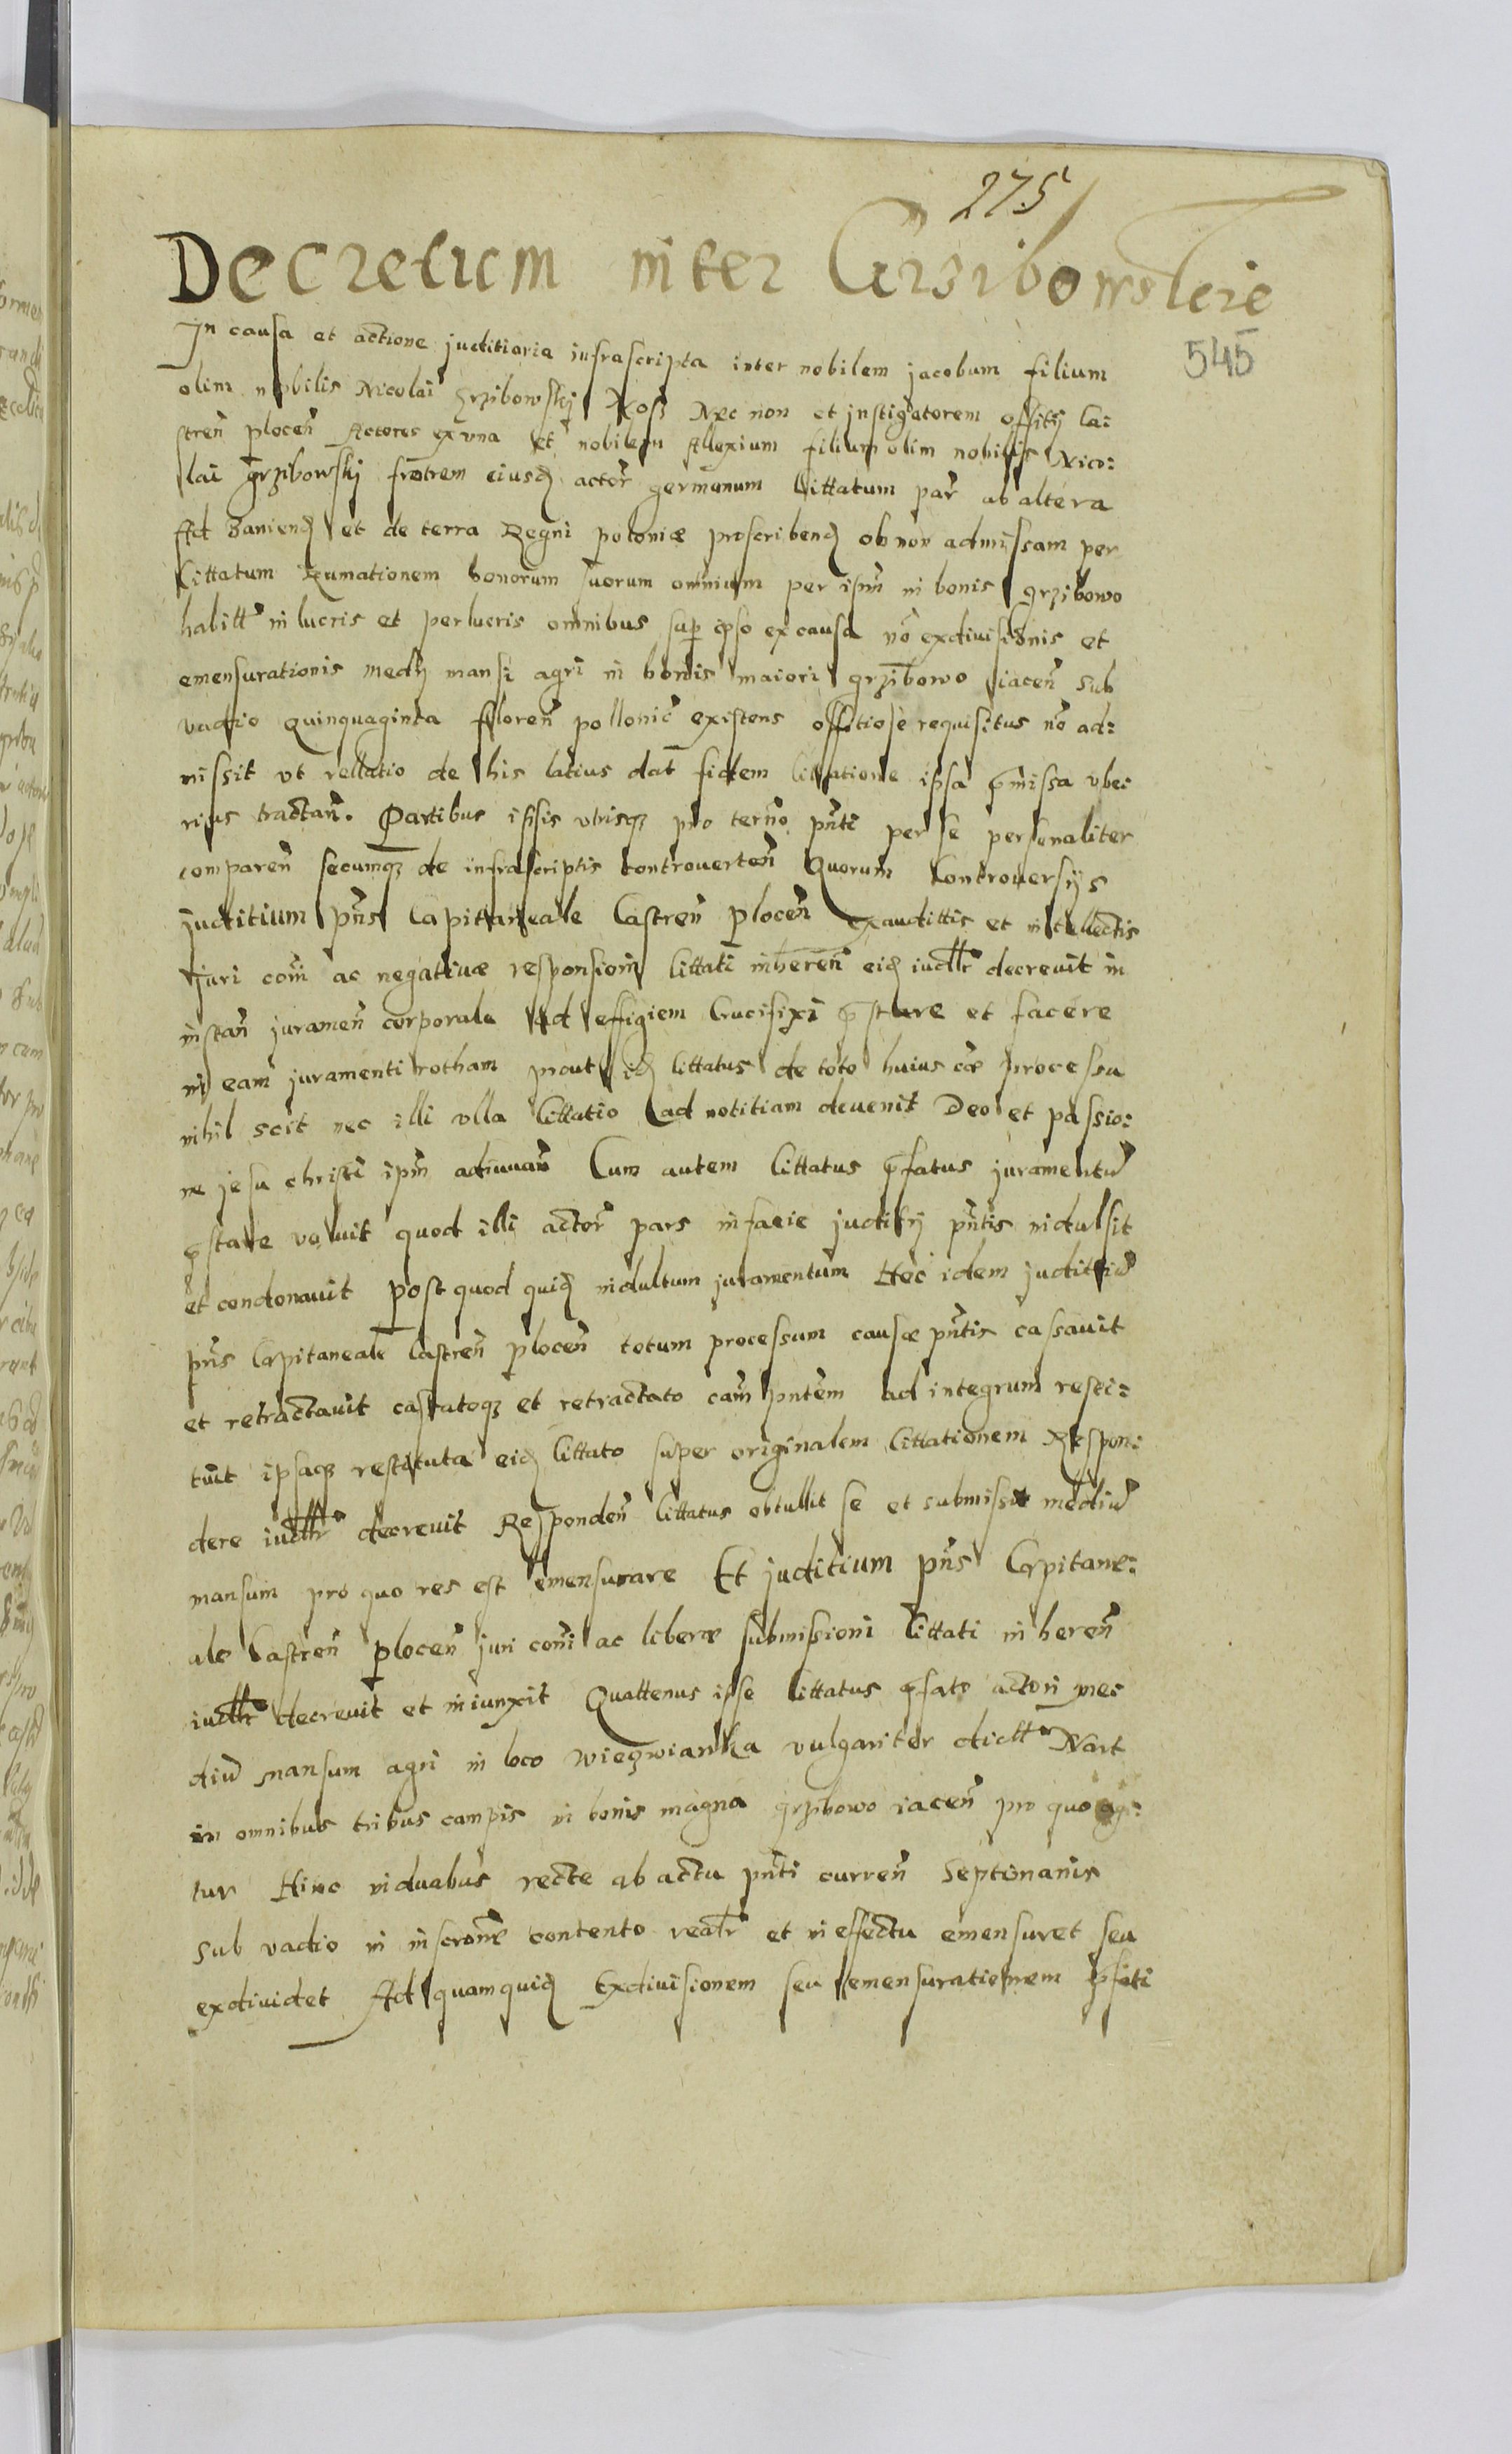 275
Decretum inter Grzibowskie
545
In causa et actione juditiaria infrascripta inter nobilem jacobum filium
olim nobilis Nicolai Grzibowskij Nec non et jnstigatorem offitij Ca:
stren̄ plocen̄ Actores ex vna et nobilem Allexium filium olim nobilis Nico:
lai grzibowskij fratrem eiusd actor germanum Cittatum par ab altera
Ad baniend et de terra Regni poloniæ proscribend ob non admissam per
Cittatum bonorum suorum omnium per ipm̄ in bonis grzibowo
habitt in lucris et perlucris omnibus sup ipso ex causa nō exdivisionis et
emensurationis medij mansi agri in bonis maiori grzibowo iacen̄ sub
vadio quinquaginta floren̄ pollonic̄ existens offitiose requisitus nō ad:
missit vt rellatio de his latius dat fidem Cittatione ipsa p̄missa vbe:
rius tractan̄. Partibus ipsis vtrisq pro terno pn̄ti per se personaliter
comparen̄ secumq de infrascriptis controverten̄ Quorum Controversijs
juditium pn̄s Capitaneale Castren̄ plocen̄ exaudittis et intellectis
Juri com̄i ac negativæ responsioni Cittati inheren̄ eid decrevit in
instan̄ juramen̄ corporale ad effigiem Crucifixi p̄stare et facere
in eam juramenti rotham prout id Cittatus de toto huius cæ processu
nihil scit nec illi vlla Cittatio ad notitiam devenit Deo et passio:
ne jesu christi ipm̄ adiuuan̄ Cum autem Cittatus p̄fatus juramentū
p̄stare voluit quod illi actor pars in facie juditij pn̄tis indulsit
et condonavit post quod quid indultum juramentum Hoc idem juditiū
pn̄s Capitaneale Castren̄ plocen̄ totum processum causæ pn̄tis cassavit
et retractavit cassatoq et retractato cam̄ pn̄tem ad integrum resti:
tuit ipsaq restituta eid Cittato super originalem Cittationem Respon:
dere decrevit Responden̄ Cittatus obtullit se et submissit mediū
mansum pro quo res est emensurare Et juditium pn̄s Capitane:
ale Castren̄ plocen̄ juri com̄i ac liberæ submissioni Cittati inheren̄
decrevit et iniunxit Quattenus ipse Cittatus p̄fato actori me
diū mansum agri in loco vulgariter dictt Nart
in omnibus tribus campis in bonis magna grzibowo iacen̄ pro quo agi:
tur Hinc in duabus recte ab actu pn̄ti curren̄ Septimanis
sub vadio in inscrone contento realr et in effectu emensuret seu
exdividet Ad quamquid Exdivisionem seu emensurationem p̄fati